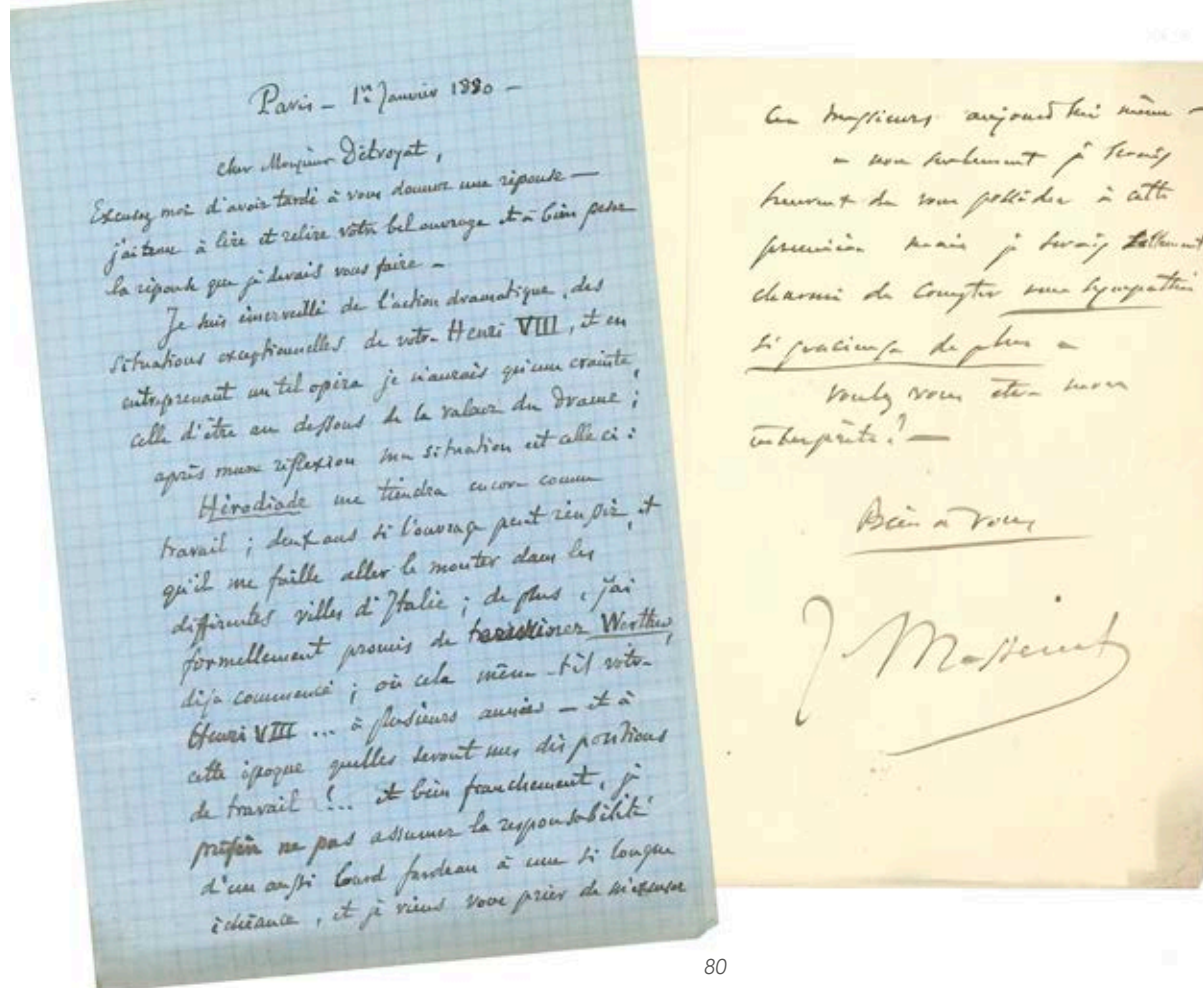 Paris – 1er Janvier 1880 –
cher Monsieur Détroyat,
Excusez moi d'avoir tardé à vous donner une réponse –
j'ai tenu à lire et relire votre bel ouvrage et à bien peser
la réponse que je devais vous faire –
Je suis émerveillé de l'action dramatique, des
situations exceptionnelles de votre Henri VIII, et en
entreprenant un tel opéra je n'aurais qu'une crainte,
celle d'être au dessous de la valeur du drame ;
après mure réflexion ma situation est celle ci :
Hérodiade me tiendra encore comme
travail ; deux ans si l'ouvrage peut réussir, et
qu'il me faille aller le monter dans les
différentes villes d'Italie ; de plus, j'ai
formellement promis de Werther,
déja commencé ; où cela mène-t-il votre
Henri VIII ... à plusieurs années – et à
cette époque quelles seront mes dispositions
de travail !.. et bien franchement, je
préfère ne pas assumer la responsabilité
d'un aussi lourd fardeau à une si longue
échéance, et je viens vous prier de m'excuser
messieurs aujourd'hui même –
– non seulement je serais
heureux de vous posséder à cette
première mais je serais tellement
charmé de compter une sympathie
si gracieuse de plus –
voulez vous être mon
interprète ? –
Bien à vous
J. Massenet
80